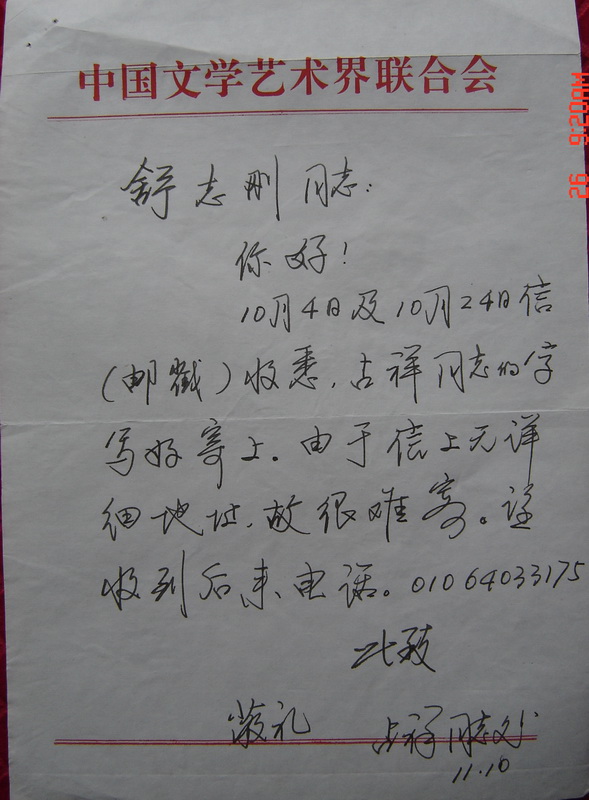 中国文学艺术界联合会
舒志刚同志:
你好!
10月4日及10月24日信
(邮戳)收悉,占祥同志的字
写好寄上。由于信上无详
细地址,故很难寄。请
收到后来电话。010 64033175
此致
敬礼
占祥同志
11.10